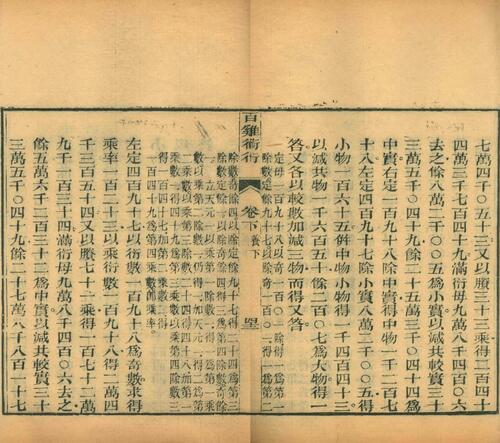 七萬四千〇五十三又以賸三十三乘得二百四十
四萬三千七百四十九滿衍母九萬八千四百〇六
去之餘八萬二千〇〇五爲小實以減共較實三十
三萬五千〇四十九得二十五萬三千〇四十四爲
中實右定一百九十八除中實得中物一千二百七
十八左定四百九十七除小實八萬二千〇〇五得
小物一百六十五併中物小物得一千四百四十三
以減共物一千六百五十餘二百〇七爲大物得一
答又各以較數加減三物而得又答
定母一百九十八以奇一百〇一除得一爲第一
除數定餘九十七以除奇一百〇一得一爲第二
百雞術衍
卷下
除數奇餘四以除定餘九十七得二十四爲第三
除數定餘一以除奇餘四得三爲第四除數奇餘
一立天元一以乘第一除數得一爲第一乘
數以乘第二除數得一加天元一得二爲第
二乘數以乘第三除數二十四得四十八加第一
乘數一得四十九爲第三乘數以乘第四除數三
得一百四十七加第二乘數二得
一百四十九爲第四乘數即乘率
左定四百九十七以衍數一百九十八爲奇數求得
乘率一百二十三以乘衍數一百九十八得二萬四
千三百五十四又以賸七十一乘得一百七十二萬
九千一百三十四滿衍母九萬八千四百〇六去之
餘五萬六千二百三十二爲中實以減共較實三十
三萬五千〇四十九餘二十七萬八千八百一十七